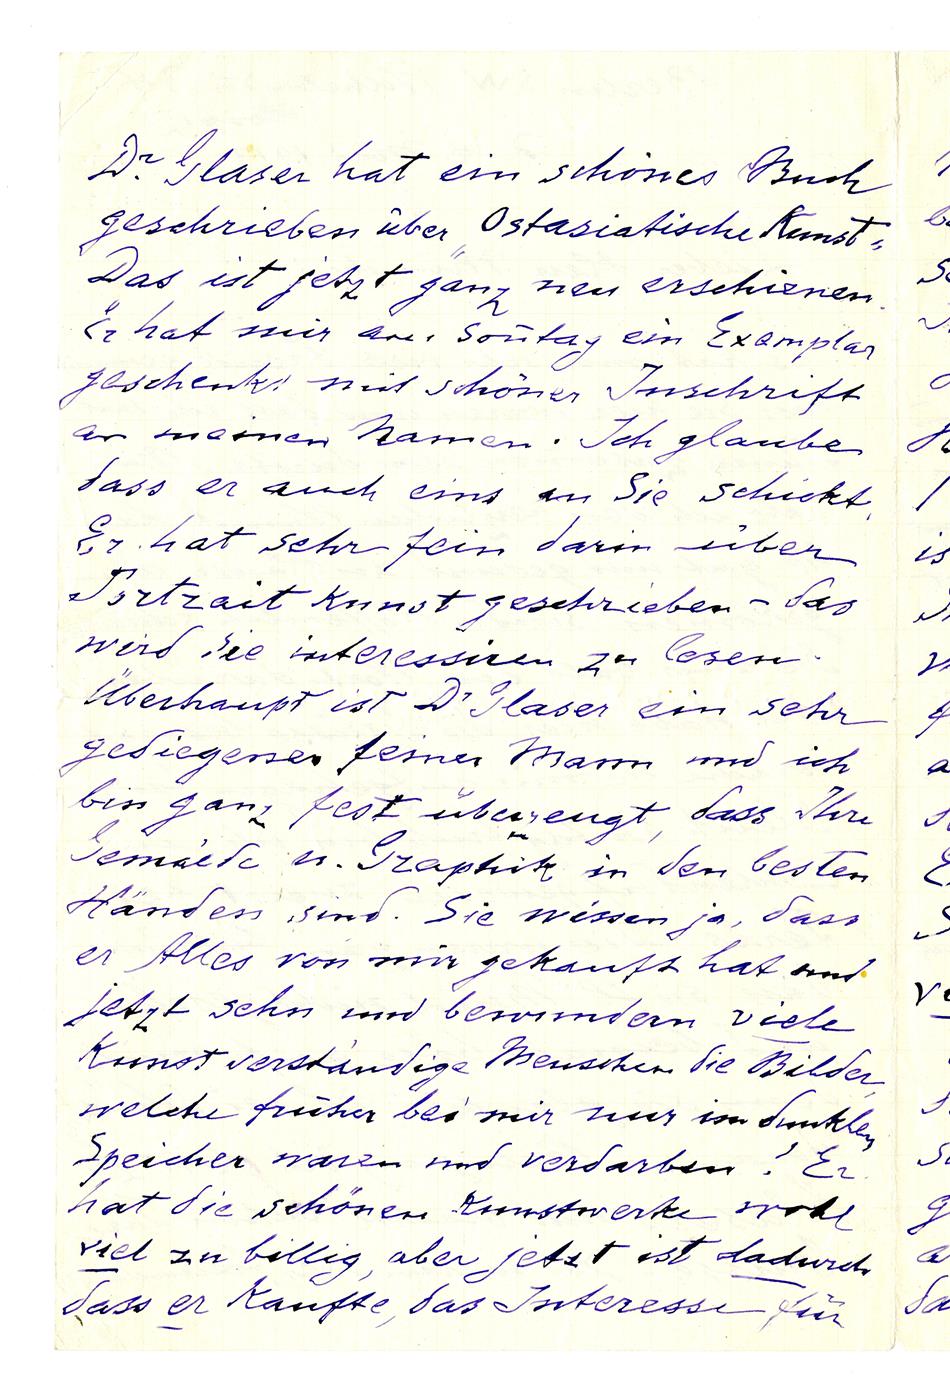 Dr. Glaser hat ein schönes Buch
geschrieben über "Ostasiatische Kunst".
Das ist jetzt ganz neu erschienen.
Er hat mir am Soñtag ein Exemplar
geschenkt mit schöner Inschrift
an meinen Namen. Ich glaube
dass er auch eins an Sie schickt.
Er hat sehr fein darin über
Portrait Kunst geschrieben – das
wird Sie interessiren zu lesen.
Überhaupt ist Dr Glaser ein sehr
gediegener feiner Mann und ich
bin ganz fest überzeugt, dass Ihre
Gemälde u. Graphik in den besten
Händen sind. Sie wissen ja, dass
er Alles von mir gekauft hat und
jetzt sehn und bewundern viele
Kunstverständige Menschen die Bilder,
welche früher bei mir nur im dunklen
Speicher waren und verdarben! Er
hat die schönen Kunstwerke wohl
viel zu billig, aber jetzt ist dadurch
dass er kaufte, das Interesse für